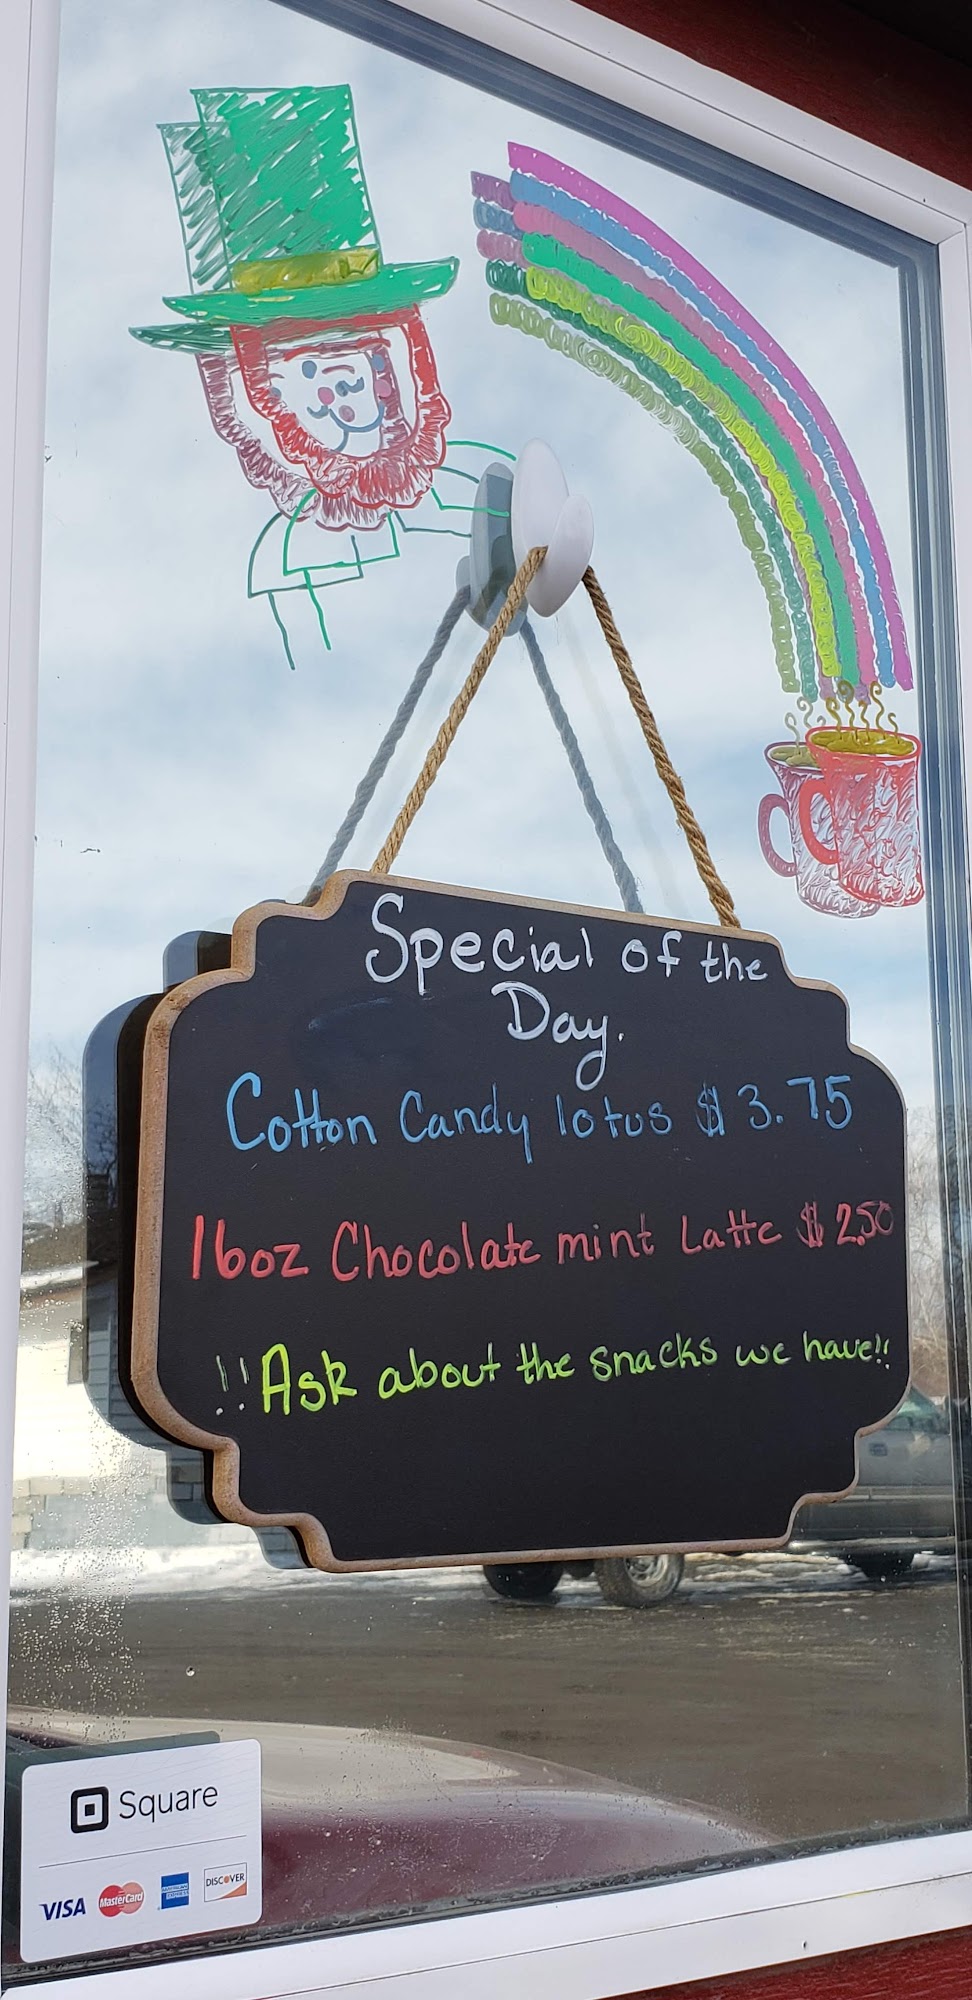 Special of the
Day.
Cotton Candy lotus $ 3.75
16oz Chocolate mint Latte $ 2.50
!!Ask about the snacks we have!!
Square
VISA MasterCard AMERICAN EXPRESS DISCOVER